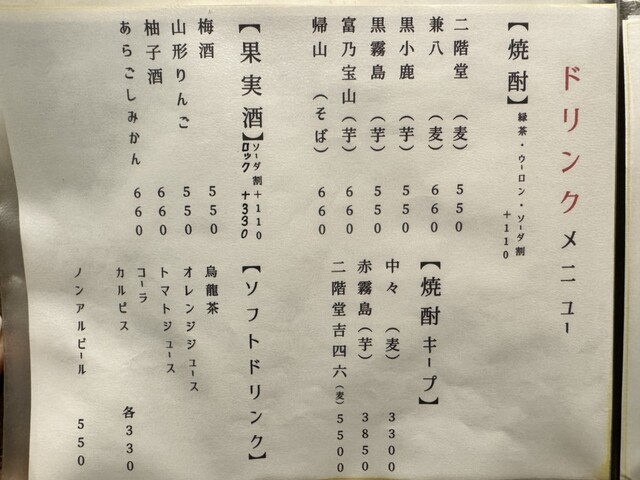 ドリンクメニュー
【焼酎】緑茶・ウーロン・ソーダ割+110
二階堂 (麦) 550
兼八 (麦) 660
黒小鹿 (芋) 550
黒霧島 (芋) 550
富乃宝山 (芋) 660
帰山 (そば) 660
【焼酎キープ】
中々 (麦) 3300
赤霧島 (芋) 3850
二階堂吉四六 (麦) 5500
【果実酒】ソーダ割+110
ロック +330
梅酒 550
山形りんご 550
柚子酒 660
あらごしみかん 660
【ソフトドリンク】
烏龍茶
オレンジジュース
トマトジュース
コーラ
カルピス 各330
ノンアルビール 550